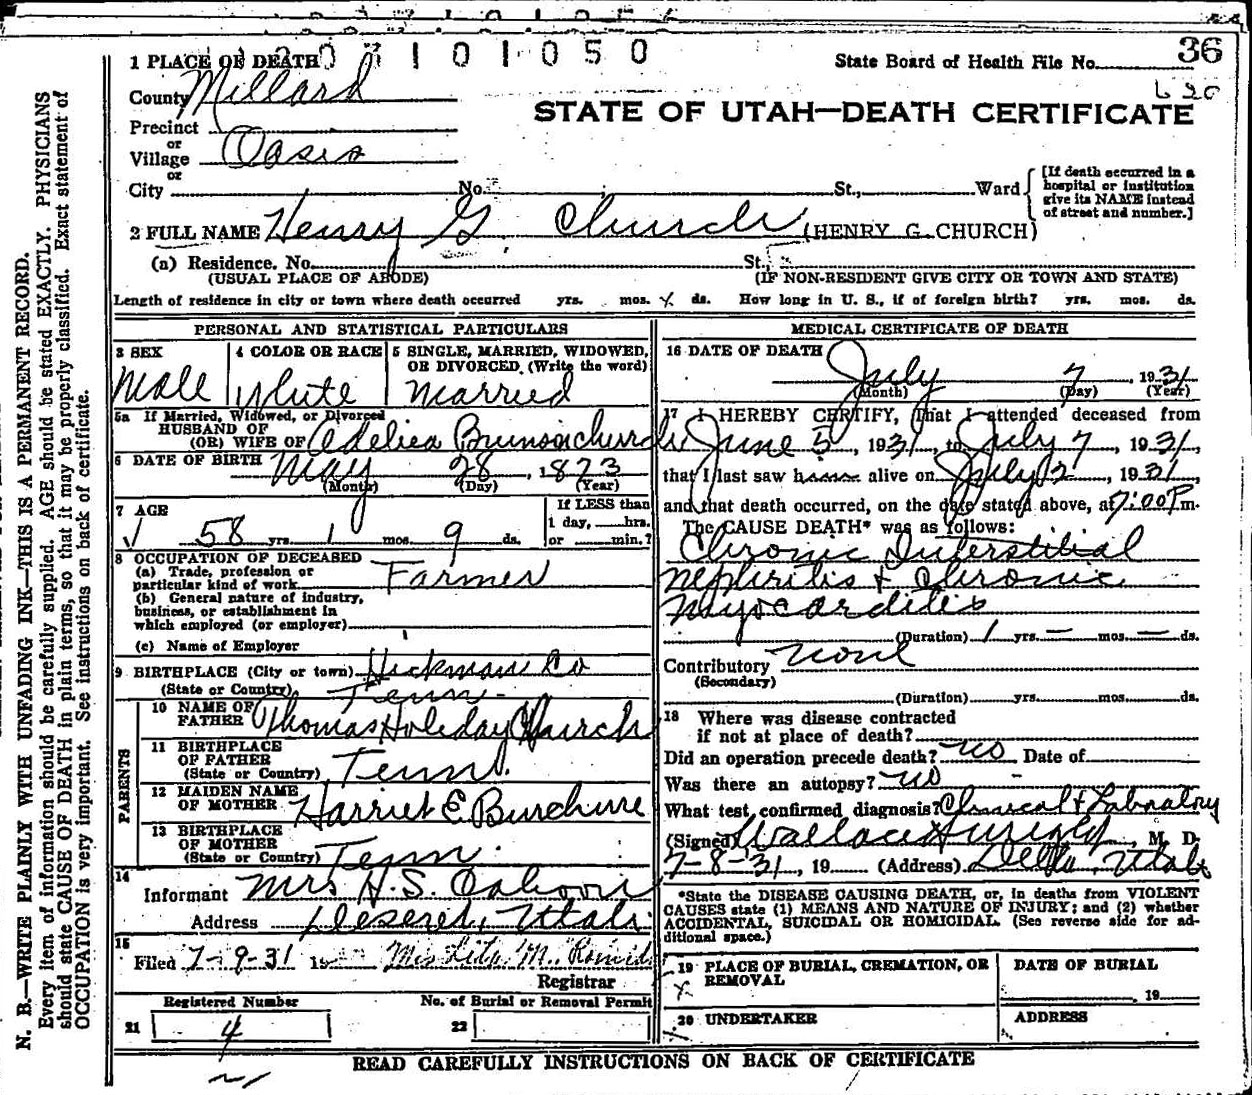 1 PLACE OF DEATH
101050
State Board of Health File No. 36
County Millard
STATE OF UTAH—DEATH CERTIFICATE
Precinct
or
Village Oasis
or
City No. St., Ward
[If death occurred in a
hospital or institution
give its NAME instead
of street and number.]
2 FULL NAME Henry G. Church (HENRY G. CHURCH)
(a) Residence. No. St.,
(USUAL PLACE OF ABODE) (IF NON-RESIDENT GIVE CITY OR TOWN AND STATE)
Length of residence in city or town where death occurred yrs. mos. ds. How long in U. S., if of foreign birth? yrs. mos. ds.
PERSONAL AND STATISTICAL PARTICULARS
3 SEX
Male
4 COLOR OR RACE
White
5 SINGLE, MARRIED, WIDOWED,
OR DIVORCED. (Write the word)
Married
5a If Married, Widowed, or Divorced
HUSBAND OF
(OR) WIFE OF Church
6 DATE OF BIRTH May 28, 1873
(Month) (Day) (Year)
7 AGE
58 yrs. 1 mos. 9 ds.
If LESS than
1 day, hrs.
or min.?
8 OCCUPATION OF DECEASED
(a) Trade, profession or
particular kind of work Farmer
(b) General nature of industry,
business, or establishment in
which employed (or employer)
(c) Name of Employer
9 BIRTHPLACE (City or town) Hickman Co
(State or Country) Tenn.
PARENTS
10 NAME OF
FATHER Thomas Holiday Church
11 BIRTHPLACE
OF FATHER
(State or Country) Tenn.
12 MAIDEN NAME
OF MOTHER Harriet E.
13 BIRTHPLACE
OF MOTHER
(State or Country) Tenn.
14
Informant Mrs H. S.
Address Deseret, Utah.
15
Filed 7-9-31 19 M.
Registrar
Registered Number
21 4
No. of Burial or Removal Permit
22
MEDICAL CERTIFICATE OF DEATH
16 DATE OF DEATH
July 7, 1931
(Month) (Day) (Year)
17 I HEREBY CERTIFY, That I attended deceased from
June 5, 1931, to July 7, 1931,
that I last saw him alive on July 2, 1931,
and that death occurred, on the date stated above, at 7:00 P.m.
The CAUSE DEATH* was as follows:
Chronic Interstitial
Nephritis & Chronic
Myocarditis
(Duration) 1 yrs. — mos. — ds.
Contributory None
(Secondary)
(Duration) yrs. mos. ds.
18 Where was disease contracted
if not at place of death?
Did an operation precede death? no Date of
Was there an autopsy? no
What test confirmed diagnosis? Clinical & Labratory
(Signed) Wallace M. D.
7-8-31, 19 (Address) Delta, Utah
*State the DISEASE CAUSING DEATH, or, in deaths from VIOLENT
CAUSES state (1) MEANS AND NATURE OF INJURY; and (2) whether
ACCIDENTAL, SUICIDAL OR HOMICIDAL. (See reverse side for ad-
ditional space.)
19 PLACE OF BURIAL, CREMATION, OR
REMOVAL
DATE OF BURIAL
, 19
20 UNDERTAKER
ADDRESS
READ CAREFULLY INSTRUCTIONS ON BACK OF CERTIFICATE
N. B.—WRITE PLAINLY WITH UNFADING INK—THIS IS A PERMANENT RECORD.
Every item of information should be carefully supplied. AGE should be stated EXACTLY. PHYSICIANS
should state CAUSE OF DEATH in plain terms, so that it may be properly classified. Exact statement of
OCCUPATION is very important. See instructions on back of certificate.